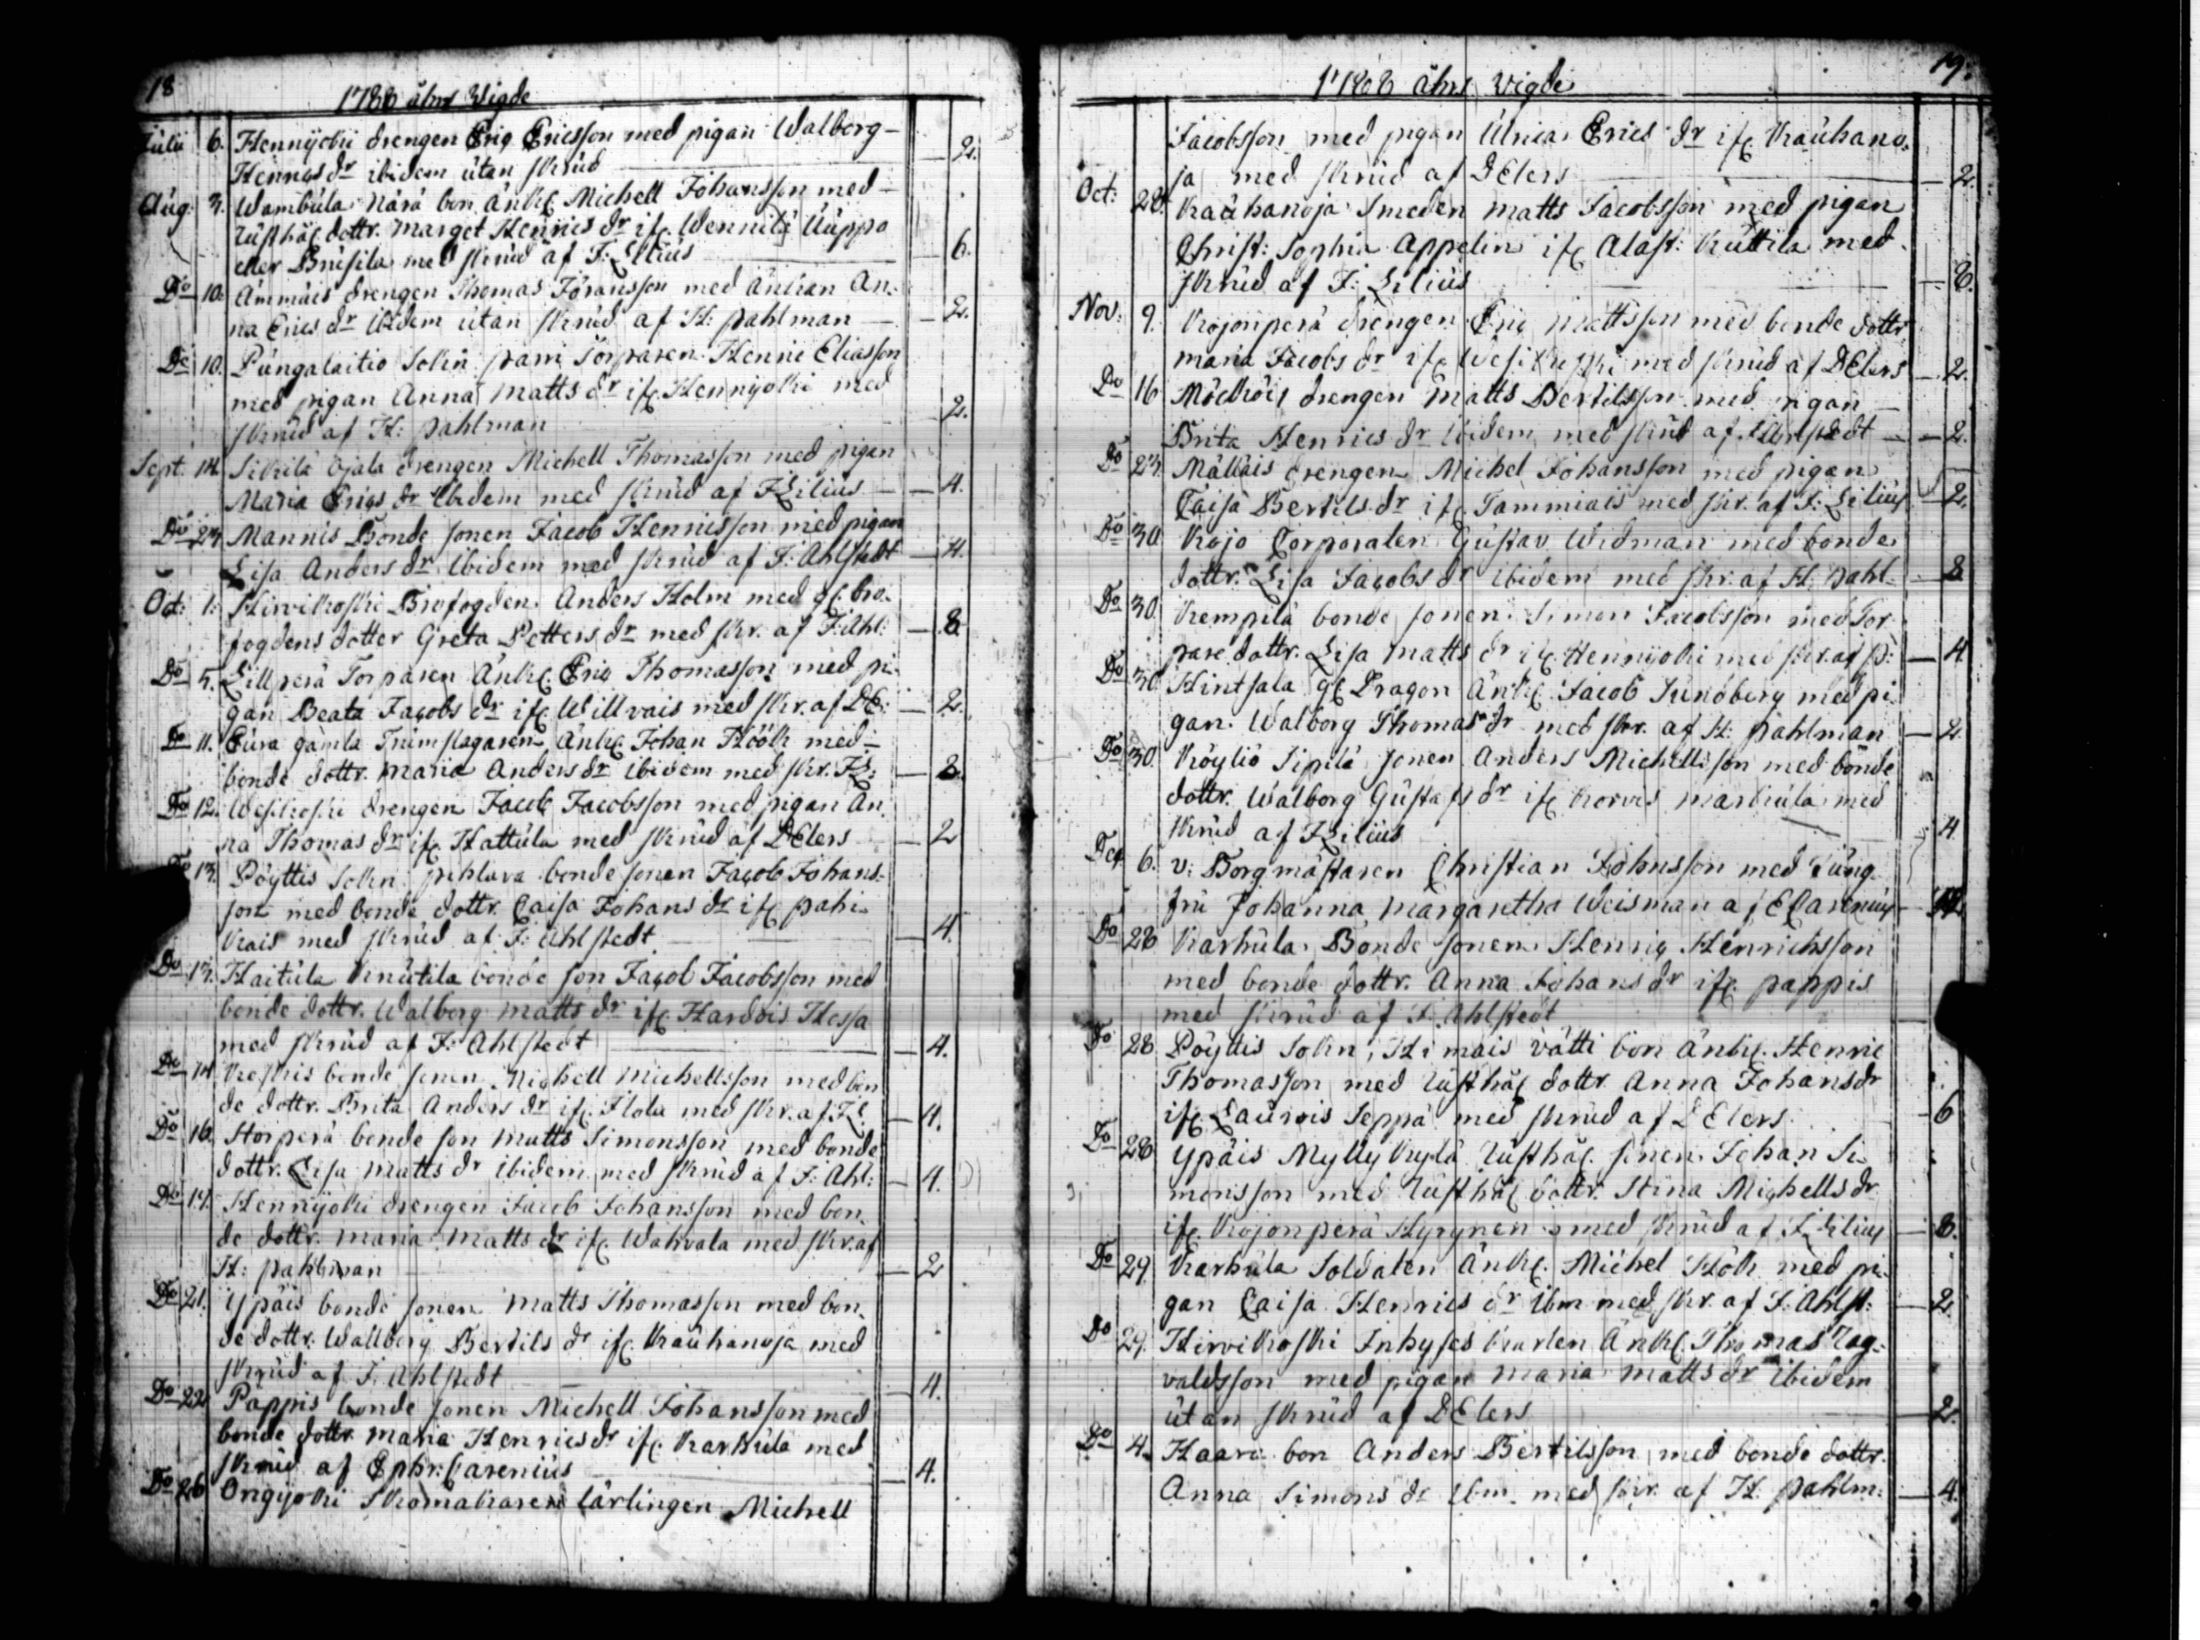 18
1786 åhrs Wigde
Julii 6. Hennijoki drengen Eriq Ericsson med pigan Walborg
Henricsdr ibidem utan skrud — 2.
Aug: 3. Wambula Nära bon Änkl. Michell Johansson med
Rusthål dottr. Marget Henricsdr ifr. Wennilä Uuppo
eller Prusila med skrud af J: Lilius — 6.
Do 10. Ammais drengen Thomas Jöransson med Änkan An-
na Ericsdr ibidem utan skrud af H: Pahlman — 2.
Do 10. Pungalaitio Sokn Torparen Henric Eliasson
med pigan Anna Mattsdr ifr. Hennijoki med
skrud af H: Pahlman — 2.
Sept: 14. Sikilä Ojala drengen Michell Thomasson med pigan
Maria Ericsdr ibidem med skrud af J Lilius — 4.
Do 27. Mannis Bonde sonen Jacob Henricsson med pigan
Lisa Andersdr ibidem med skrud af J: Ahlstedt — 4.
Oct: 1. Hirvikoski Brofogden Anders Holm med gl. bro-
fogdens dotter Greta Pettersdr med skr. af J: Ahl: — 8.
Do 5. Lillperä Torparen Änkl. Eriq Thomasson med pi-
gan Beata Jacobsdr ifr Willvais med skr. af DE: — 2.
Do 11. Eura gamla Trumslagaren Änkl. Johan Höök med
bonde dottr. Maria Andersdr ibidem med skr. JL: — 2.
Do 12. Wesikoski drengen Jacob Jacobsson med pigan An-
na Thomasdr ifr. Hattula med skrud af D Elers — 2
Do 13. Pöyttis Sokn pihlava bonde sonen Jacob Johans-
son med bonde dottr. Caisa Johansdr ifr pahi-
kais med skrud af J: Ahlstedt — 4.
Do 13. Haitula knutila bonde son Jacob Jacobsson med
bonde dottr. Walborg Mattsdr ifr Hardois Hessa
med skrud af J: Ahlstedt — 4.
Do 14. Keskis bonde sonen Michell Michellsson med bon
de dottr. Brita Andersdr ifr. Flola med skr. af JL: — 4.
Do 16. Storperä bonde son Matts Simonsson med bonde
dottr. Lisa Mattsdr ibidem med skrud af J: Ahl: — 4.
Do 17. Hennijoki drengen Jacob Johansson med bon-
de dottr. Maria Mattsdr ifr. Wahvala med skr. af
H: Pahlman — 2
Do 21. Ypäis bonde sonen Matts Thomasson med bon-
de dottr. Wallborg Bertilsdr ifr. Kauhanoja med
skrud af J: Ahlstedt — 4.
Do 22 Pappis bonde sonen Michell Johansson med
bonde dottr Maria Henricsdr ifr. Karhula med
skrud af Ephr. Carenius — 4.
Do 26 Orijoki Skomakaren lärlingen Michell
19.
1786 åhrs vigde
Jacobsson med pigan Ulrica Ericsdr ifr. Kauhano-
ja med skrud af D Elers — 2.
Oct: 28. Kauhanoja Smeden Matts Jacobsson med pigan
Christ: Sophia Appelin ifr Alast: Kuttila med
skrud af J: Lilius — 8.
Nov: 9. Kojonperä drengen Eriq Mattsson med bonde dottr
Maria Jacobsdr ifr Wesikoski med skrud af D Elers — 2.
Do 16 drengen Matts Bertilsson med pigan
Brita Henricsdr ibidem med skrud af J Ahlstedt — 2.
Do 23. Mällais drengen Michel Johansson med pigan
Caisa Bertilsdr ifr Tammiais med skr. af J: Lilius — 2.
Do 30. Kojo Corporalen Gustav Widman med bonde
dottr. Lisa Jacobsdr ibidem med skr. af H. Pahl — 8.
Do 30. Kempilä bonde sonen Simon Jacobsson med Tor-
pare dottr. Lisa Mattsdr ifr. Hennijoki med skr. af P: — 4.
Do 30. Hintsala gl Dragon Änkl. Jacob Sundberg med pi-
gan Walborg Thomasdr med skr. af H: Pahlman — 2.
Do 30. Köyliö Sipilä sonen Anders Michellsson med bonde
dottr. Walborg Gustafsdr ifr Korvis Markula med
skrud af J Lilius — 4
Dec 6. v: Borgmästaren Christian Johnsson med Jung-
fru Johanna Margaretha Weisman af E Carenius
Do 28 Karhula Bonde sonen Henriq Henrichsson
med bonde dottr. Anna Johansdr ifr. pappis
med skrud af J. Ahlstedt
Do 28 Pöyttis Sokn, Himais vätti bon änkl. Henric
Thomasson med Rusthål dottr Anna Johansdr
ifr Laurois Seppä med skrud af D Elers. — 6
Do 28 Ypäis Myllykylä Rusthål. sonen Johan Si-
monsson med Rusthål dottr. Stina Michellsdr
ifr. Kojonperä Hyrynen med skrud af J Lilius — 8.
Do 29 Karhula Soldaten Änkl. Michel Hök med pi-
gan Caisa Henricsdr ibm med skr. af J. Ahlst: — 2.
Do 29. Hirvikoski Inhyses karlen Änkl. Thomas Rag-
valdsson med pigan Maria Mattsdr ibidem
utan skrud af D Elers — 2.
Do 4. Haara bon Anders Bertilsson med bonde dottr.
Anna Simonsdr ibm med skr. af H. Pahlm: — 4.